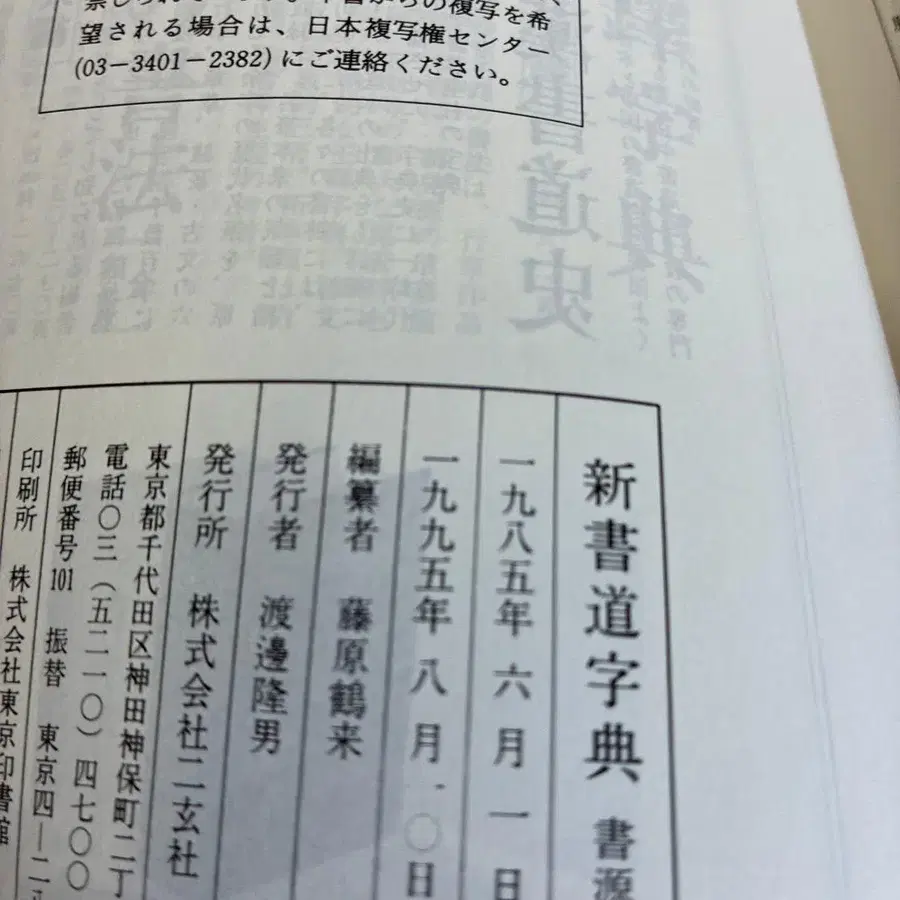 望される場合は、日本複写権センター
(03-3401-2382)にご連絡ください。
新書道字典 書源
一九八五年 六月 一日
一九九五年 八月 〇日
編纂者 藤原鶴来
発行者 渡邊隆男
発行所 株式会社二玄社
東京都千代田区神田神保町二丁
電話〇三(五二一〇)四七〇〇
郵便番号101 振替 東京四―二
印刷所 株式会社東京印書館